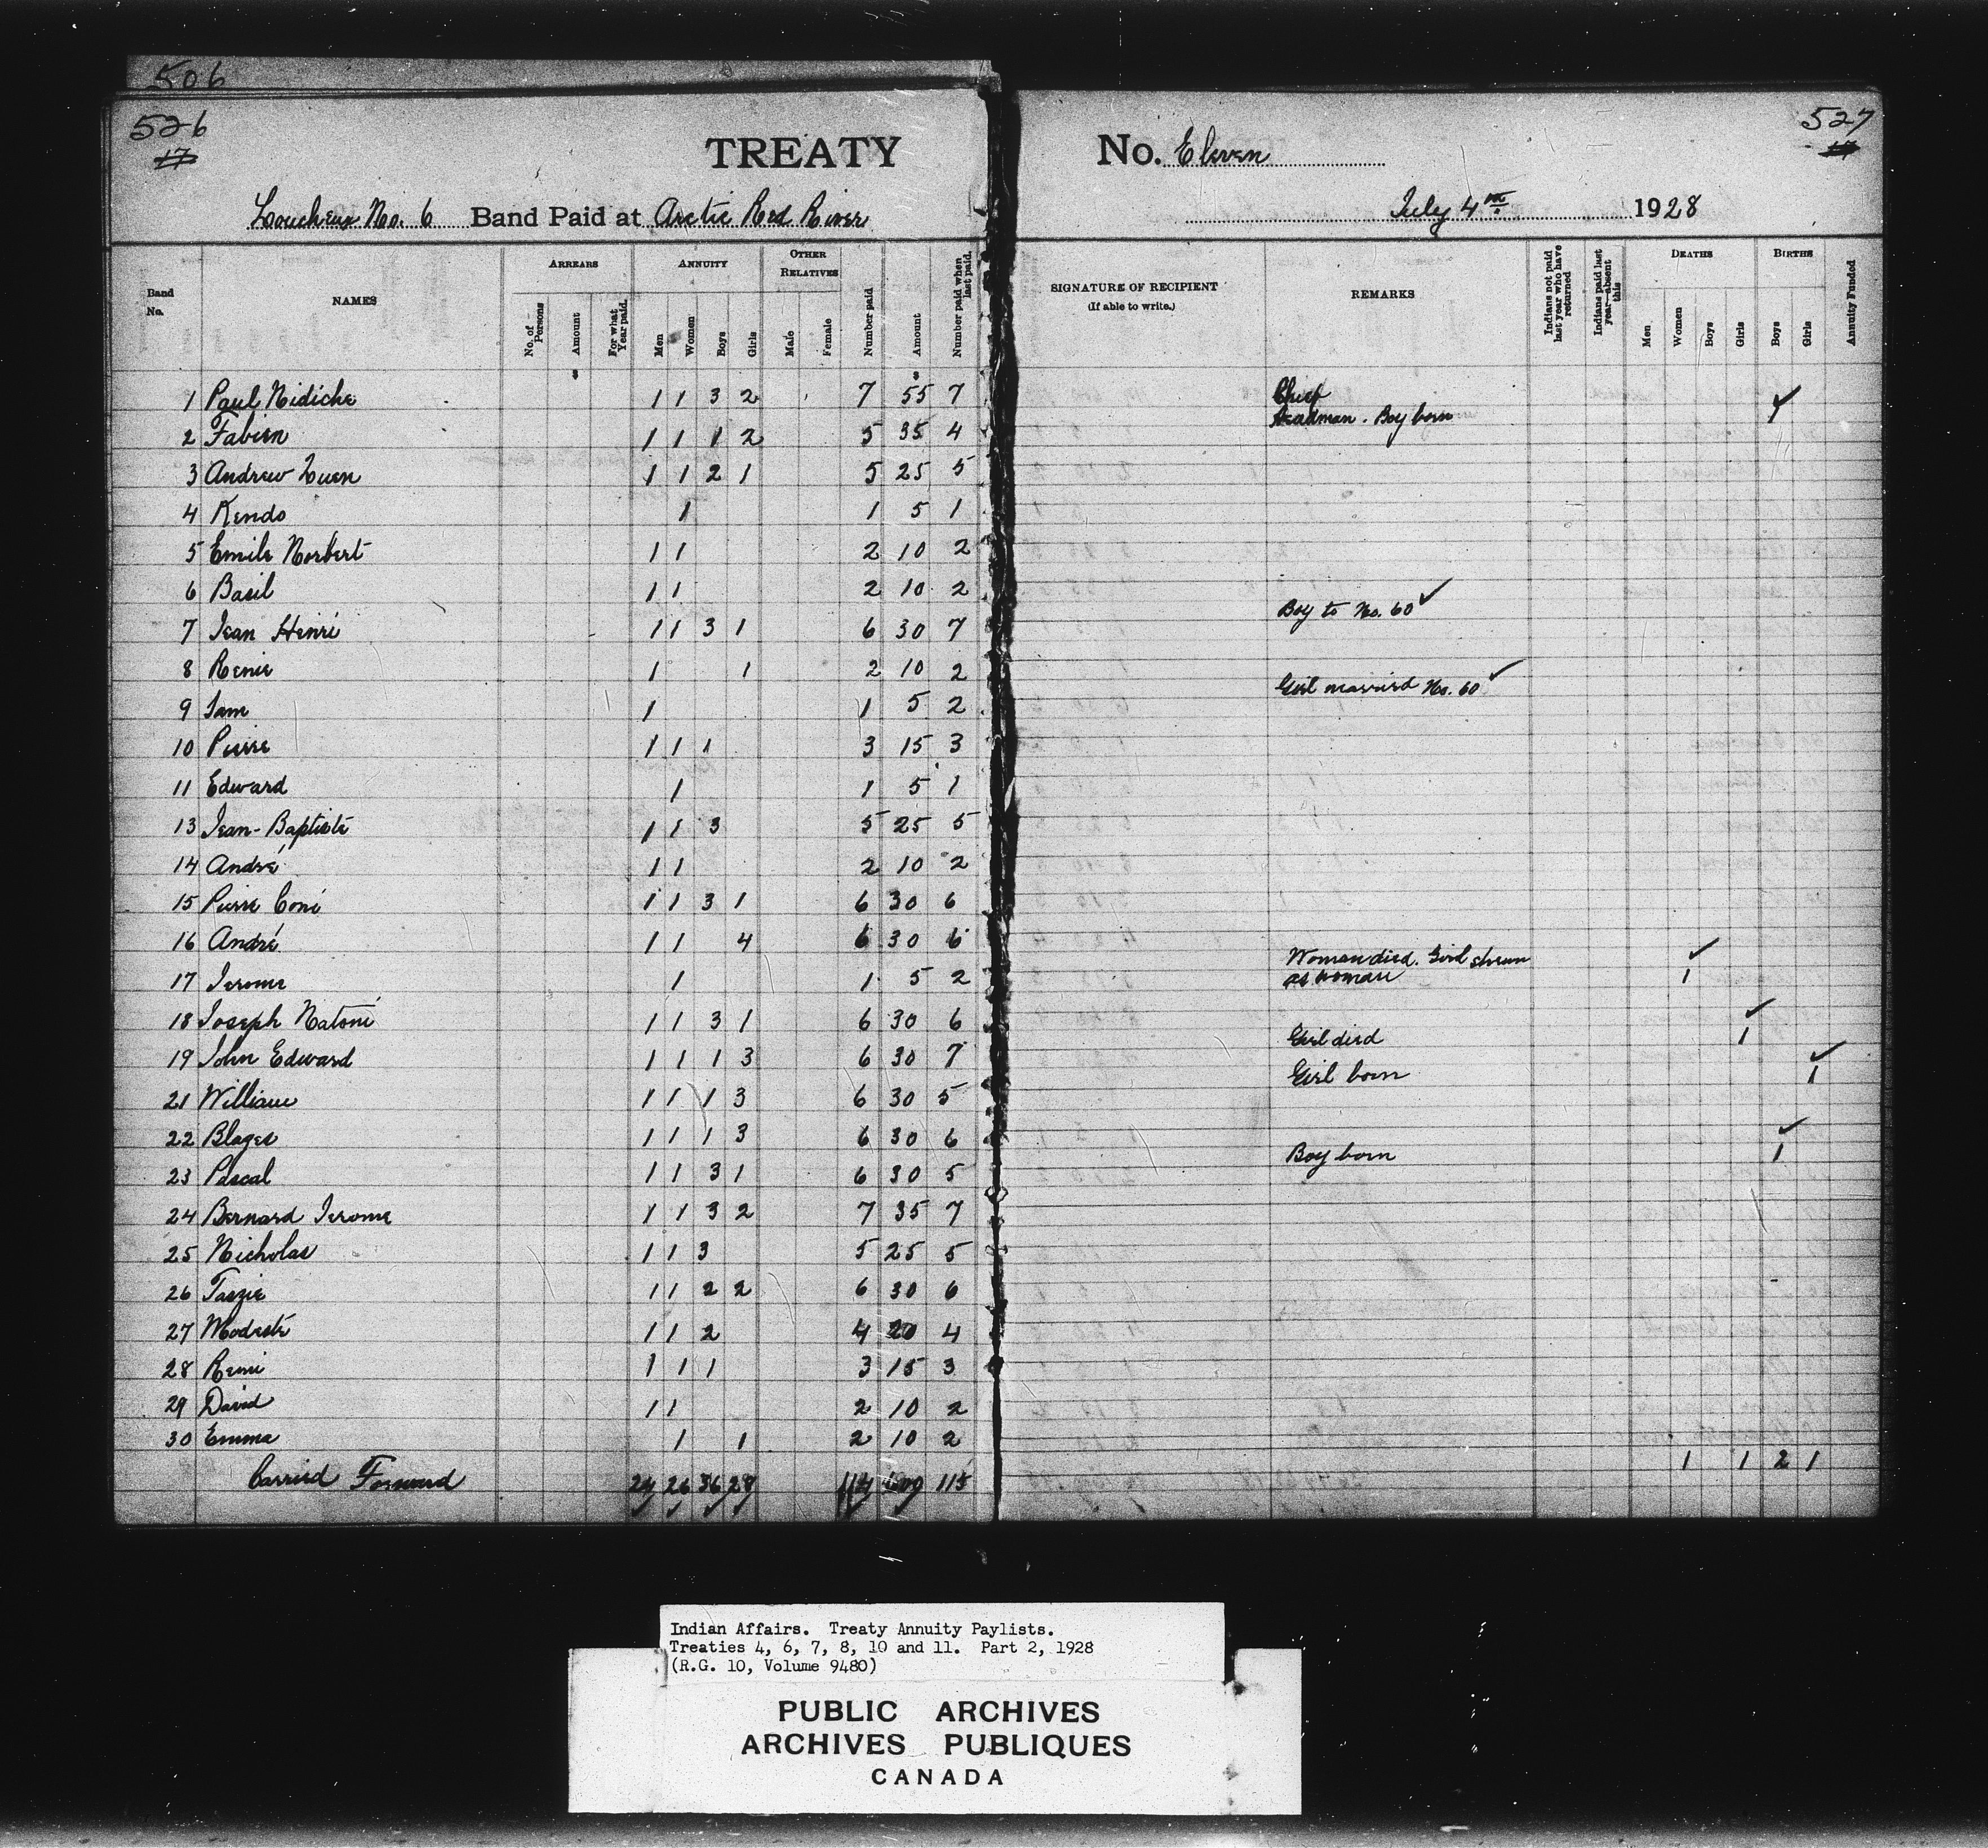 506
526
17
TREATY No. Eleven
527
17
Loucheux No. 6 Band Paid at Arctic Red River July 4th 1928
Band No. NAMES ARREARS ANNUITY OTHER RELATIVES Number paid Amount Number paid when last paid. SIGNATURE OF RECIPIENT (If able to write.) REMARKS Indians not paid last year who have returned Indians paid last year—absent this DEATHS BIRTHS Annuity Funded
No. of Persons Amount For what Year paid. Men Women Boys Girls Male Female Men Women Boys Girls Boys Girls
$ $
1 Paul Nidiche 1 1 3 2 7 55 7 Chief
2 Fabien 1 1 1 2 5 35 4 Headman. Boy born 1
3 Andrew 1 1 2 1 5 25 5
4 Kendo 1 1 5 1
5 Emile Norbert 1 1 2 10 2
6 Basil 1 1 2 10 2
7 Jean Henri 1 1 3 1 6 30 7 Boy to No. 60 ✓
8 Renie 1 1 2 10 2
9 Sam 1 1 5 2 Girl married No. 60 ✓
10 Pierre 1 1 1 3 15 3
11 Edward 1 1 5 1
13 Jean-Baptiste 1 1 3 5 25 5
14 André 1 1 2 10 2
15 Pierre Coni 1 1 3 1 6 30 6
16 André 1 1 4 6 30 6
17 Jerome 1 1 5 2 Woman died. Girl shewn as woman 1 ✓
18 Joseph Natoni 1 1 3 1 6 30 6
19 John Edward 1 1 1 3 6 30 7 Girl died 1 ✓
21 William 1 1 1 3 6 30 5 Girl born 1 ✓
22 Blages 1 1 1 3 6 30 6
23 Pascal 1 1 3 1 6 30 5 Boy born 1 ✓
24 Bernard Jerome 1 1 3 2 7 35 7
25 Nicholas 1 1 3 5 25 5
26 Tazzie 1 1 2 2 6 30 6
27 Modeste 1 1 2 4 20 4
28 Remi 1 1 1 3 15 3
29 David 1 1 2 10 2
30 Emma 1 1 2 10 2
Carried Forward 24 26 36 28 114 600 115 1 1 2 1
Indian Affairs. Treaty Annuity Paylists.
Treaties 4, 6, 7, 8, 10 and 11. Part 2, 1928
(R.G. 10, Volume 9480)
PUBLIC ARCHIVES
ARCHIVES PUBLIQUES
CANADA